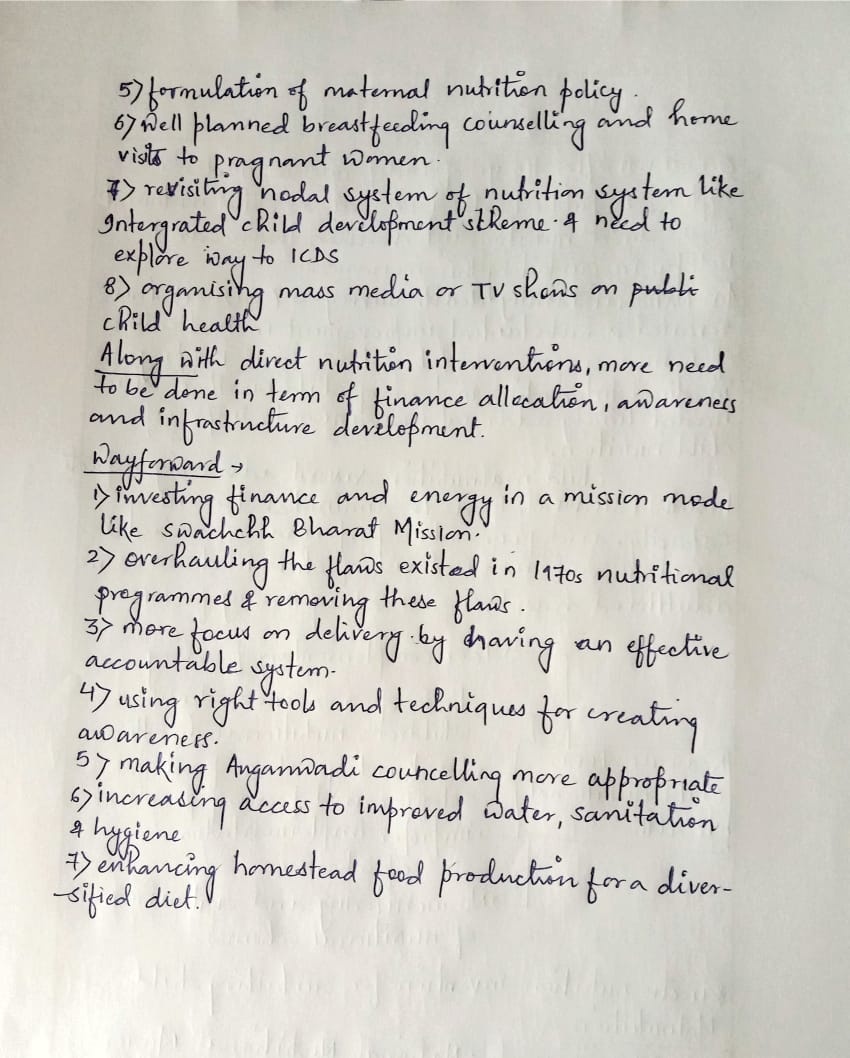 5) formulation of maternal nutrition policy.
6) Well planned breastfeeding counselling and home
visits to pragnant women.
7) revisiting nodal system of nutrition system like
Intergrated child development skheme. & need to
explore way to ICDS
8) organising mass media or TV shows on publi
child health
Along with direct nutrition interventions, more need
to be done in term of finance allocation, awareness
and infrastructure development.
Wayforward →
1) investing finance and energy in a mission mode
like swachchh Bharat Mission.
2) overhauling the flaws existed in 1970s nutritional
programmes & removing these flaws.
3) more focus on delivery by having an effective
accountable system.
4) using right tools and techniques for creating
awareness.
5) making Anganwadi councelling more appropriate
6) increasing access to improved water, sanitation
& hygiene
7) enhancing homestead food production for a diver-
-sified diet.